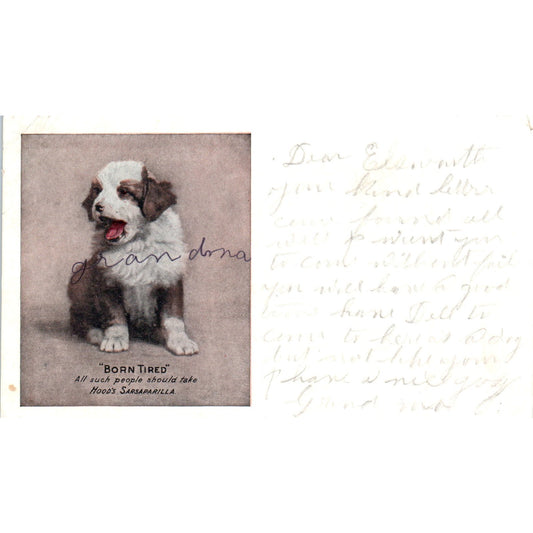 grandma
"BORN TIRED"
All such people should take
HOOD'S SARSAPARILLA
Dear Ellsworth
your kind letter
came found all
well I want you
to come without fail
you will have a good
time
come to
but not like yours
I have a nice
Grand ma